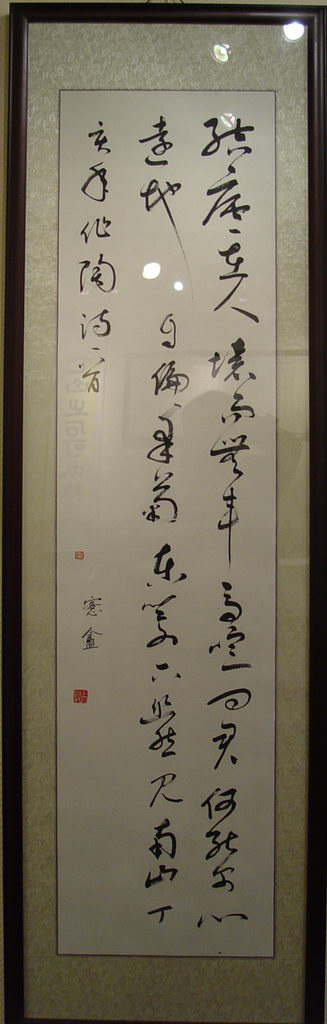 結廬在人境而無車馬喧問君何能尔心
遠地自偏采菊東篱下悠然見南山丁
亥年作陶詩一首
盦